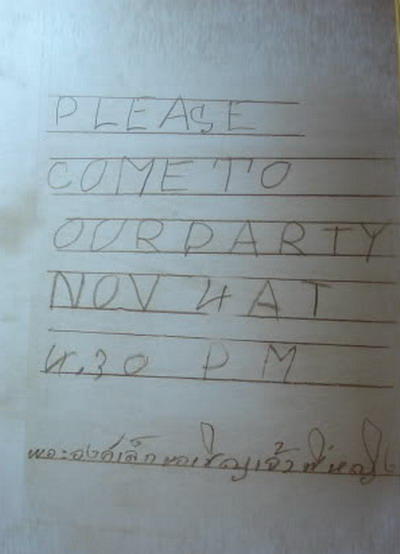 PLEASE
COME TO
OUR PARTY
NOV 4 AT
4.30 PM
พระองค์เล็กขอเชิญเจ้าพี่หญิง